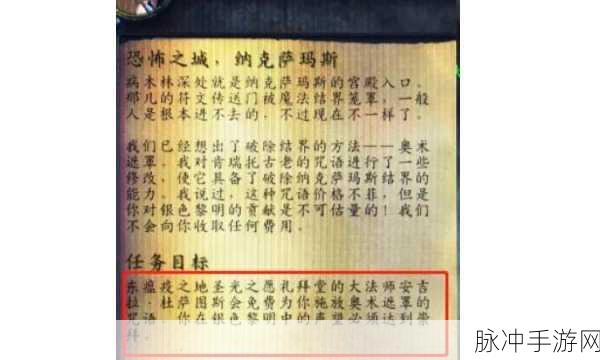 恐怖之城，纳克萨玛斯
病木林深处就是纳克萨玛斯的宫殿入口。
那儿的符文传送门被魔法结界笼罩，一般
人是根本进不去的，不过现在不一样了。
我们已经想出了破除结界的方法——奥术
遮罩。我对肯瑞托古老的咒语进行了一些
修改，使它具备了破除纳克萨玛斯结界的
能力。我说过，这种咒语价格不菲，但是
你对银色黎明的贡献是不可估量的！我们
不会向你收取任何费用。
任务目标
东瘟疫之地圣光之愿礼拜堂的大法师安吉
拉·杜萨图斯会免费为你施放奥术遮罩的
咒语。你在银色黎明中的声望必须达到崇
拜。
脉冲手游网